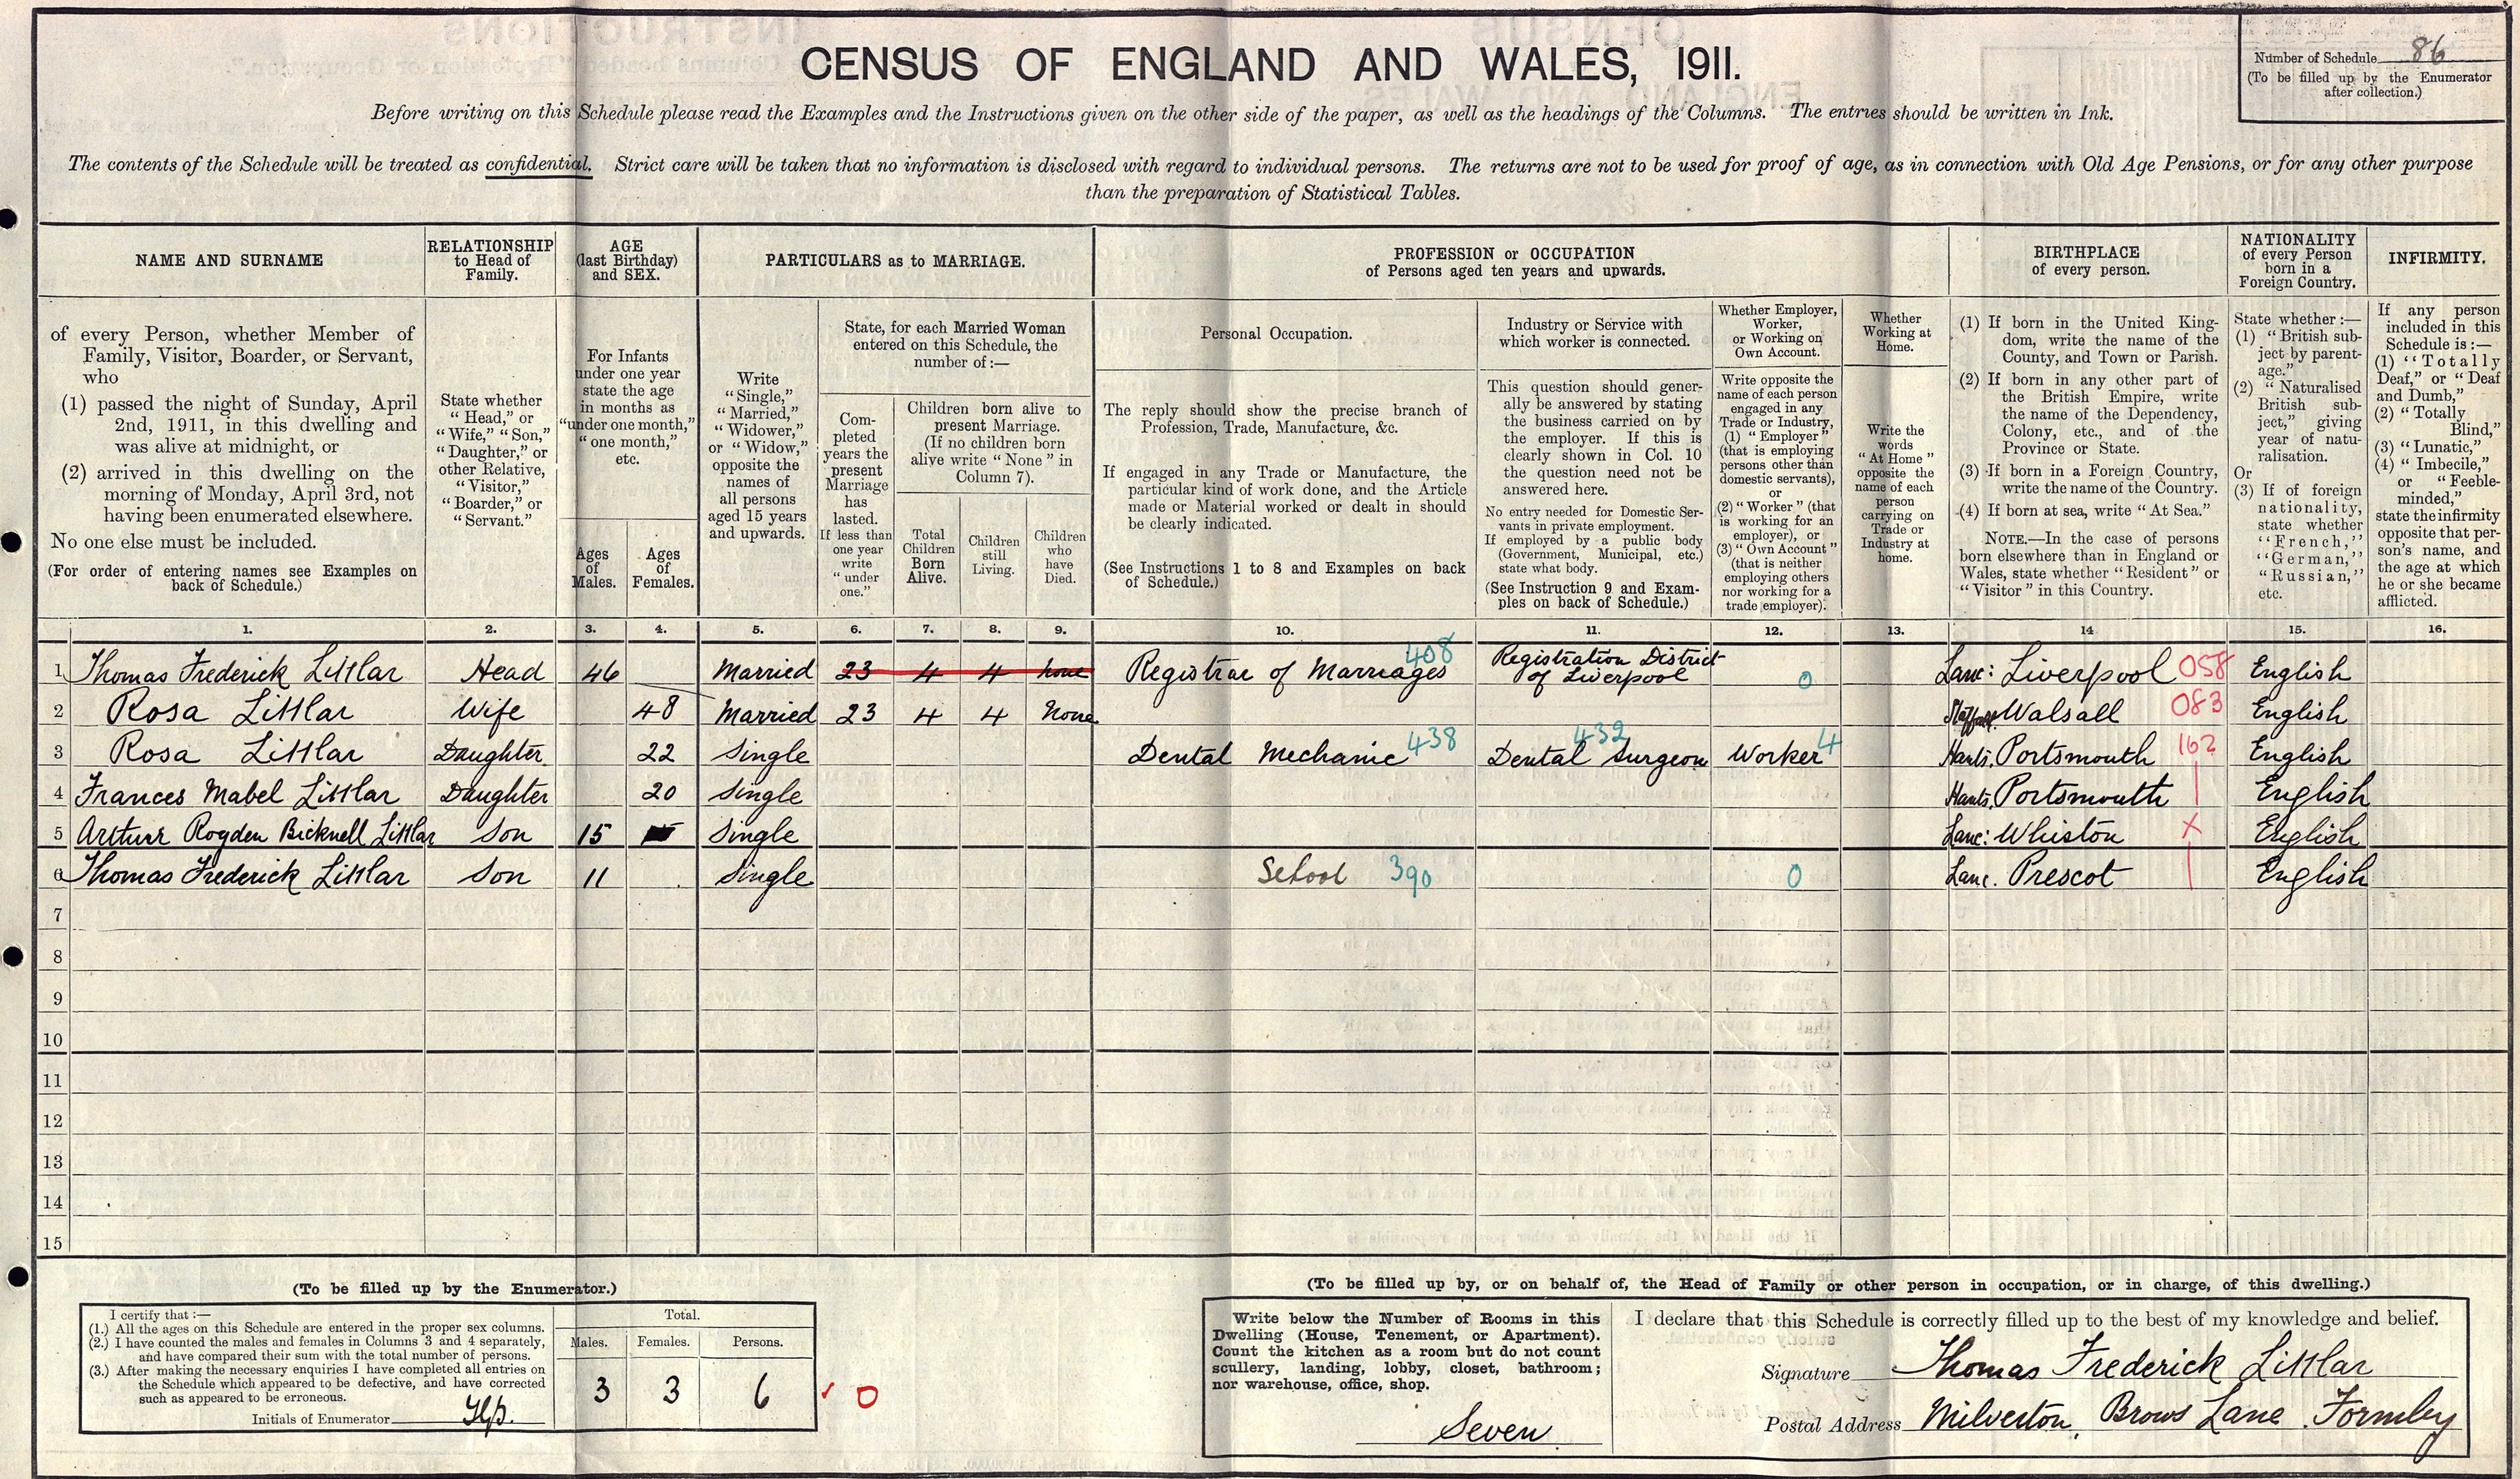 CENSUS OF ENGLAND AND WALES, 1911.
Number of Schedule 86
(To be filled up by the Enumerator
after collection.)
Before writing on this Schedule please read the Examples and the Instructions given on the other side of the paper, as well as the headings of the Columns. The entries should be written in Ink.
The contents of the Schedule will be treated as confidential. Strict care will be taken that no information is disclosed with regard to individual persons. The returns are not to be used for proof of age, as in connection with Old Age Pensions, or for any other purpose
than the preparation of Statistical Tables.
NAME AND SURNAME
of every Person, whether Member of
Family, Visitor, Boarder, or Servant,
who
(1) passed the night of Sunday, April
2nd, 1911, in this dwelling and
was alive at midnight, or
(2) arrived in this dwelling on the
morning of Monday, April 3rd, not
having been enumerated elsewhere.
No one else must be included.
(For order of entering names see Examples on
back of Schedule.)
RELATIONSHIP
to Head of
Family.
State whether
"Head," or
"Wife," "Son,"
"Daughter," or
other Relative,
"Visitor,"
"Boarder," or
"Servant."
AGE
(last Birthday)
and SEX.
For Infants
under one year
state the age
in months as
"under one month,"
"one month,"
etc.
Ages
of
Males.
Ages
of
Females.
PARTICULARS as to MARRIAGE.
Write
"Single,"
"Married,"
"Widower,"
or "Widow,"
opposite the
names of
all persons
aged 15 years
and upwards.
State, for each Married Woman
entered on this Schedule, the
number of:—
Com-
pleted
years the
present
Marriage
has
lasted.
If less than
one year
write
"under
one."
Children born alive to
present Marriage.
(If no children born
alive write "None" in
Column 7).
Total
Children
Born
Alive.
Children
still
Living.
Children
who
have
Died.
PROFESSION or OCCUPATION
of Persons aged ten years and upwards.
Personal Occupation.
The reply should show the precise branch of
Profession, Trade, Manufacture, &c.
If engaged in any Trade or Manufacture, the
particular kind of work done, and the Article
made or Material worked or dealt in should
be clearly indicated.
(See Instructions 1 to 8 and Examples on back
of Schedule.)
Industry or Service with
which worker is connected.
This question should gener-
ally be answered by stating
the business carried on by
the employer. If this is
clearly shown in Col. 10
the question need not be
answered here.
No entry needed for Domestic Ser-
vants in private employment.
If employed by a public body
(Government, Municipal, etc.)
state what body.
(See Instruction 9 and Exam-
ples on back of Schedule.)
Whether Employer,
Worker,
or Working on
Own Account.
Write opposite the
name of each person
engaged in any
Trade or Industry,
(1) "Employer"
(that is employing
persons other than
domestic servants),
or
(2) "Worker" (that
is working for an
employer), or
(3) "Own Account"
(that is neither
employing others
nor working for a
trade employer).
Whether
Working at
Home.
Write the
words
"At Home"
opposite the
name of each
person
carrying on
Trade or
Industry at
home.
BIRTHPLACE
of every person.
(1) If born in the United King-
dom, write the name of the
County, and Town or Parish.
(2) If born in any other part of
the British Empire, write
the name of the Dependency,
Colony, etc., and of the
Province or State.
(3) If born in a Foreign Country,
write the name of the Country.
(4) If born at sea, write "At Sea."
NOTE.—In the case of persons
born elsewhere than in England or
Wales, state whether "Resident" or
"Visitor" in this Country.
NATIONALITY
of every Person
born in a
Foreign Country.
State whether:—
(1) "British sub-
ject by parent-
age."
(2) "Naturalised
British sub-
ject," giving
year of natu-
ralisation.
Or
(3) If of foreign
nationality,
state whether
"French,"
"German,"
"Russian,"
etc.
INFIRMITY.
If any person
included in this
Schedule is:—
(1) "Totally
Deaf," or "Deaf
and Dumb,"
(2) "Totally
Blind,"
(3) "Lunatic,"
(4) "Imbecile,"
or "Feeble-
minded,"
state the infirmity
opposite that per-
son's name, and
the age at which
he or she became
afflicted.
1. 2. 3. 4. 5. 6. 7. 8. 9. 10. 11. 12. 13. 14 15. 16.
1 Thomas Frederick Littlar Head 46 Married 23 4 4 none Registrar of Marriages 408 Registration District of Liverpool 0 Lanc: Liverpool 058 English
2 Rosa Littlar Wife 48 Married 23 4 4 None Walsall 083 English
3 Rosa Littlar Daughter 22 Single Dental Mechanic 438 Dental Surgeon 432 Worker 4 Hants. Portsmouth 162 English
4 Frances Mabel Littlar Daughter 20 Single Hants. Portsmouth | English
5 Arthur Royden Bicknell Littlar Son 15 Single Lanc: Whiston X English
6 Thomas Frederick Littlar Son 11 Single School 390 0 Lanc. Prescot | English
7
8
9
10
11
12
13
14
15
(To be filled up by the Enumerator.)
I certify that:—
(1.) All the ages on this Schedule are entered in the proper sex columns.
(2.) I have counted the males and females in Columns 3 and 4 separately,
and have compared their sum with the total number of persons.
(3.) After making the necessary enquiries I have completed all entries on
the Schedule which appeared to be defective, and have corrected
such as appeared to be erroneous.
Initials of Enumerator
Total.
Males. Females. Persons.
3 3 6 ✓ 0
(To be filled up by, or on behalf of, the Head of Family or other person in occupation, or in charge, of this dwelling.)
Write below the Number of Rooms in this
Dwelling (House, Tenement, or Apartment).
Count the kitchen as a room but do not count
scullery, landing, lobby, closet, bathroom;
nor warehouse, office, shop.
Seven
I declare that this Schedule is correctly filled up to the best of my knowledge and belief.
Signature Thomas Frederick Littlar
Postal Address Milverton, Brows Lane. Formby